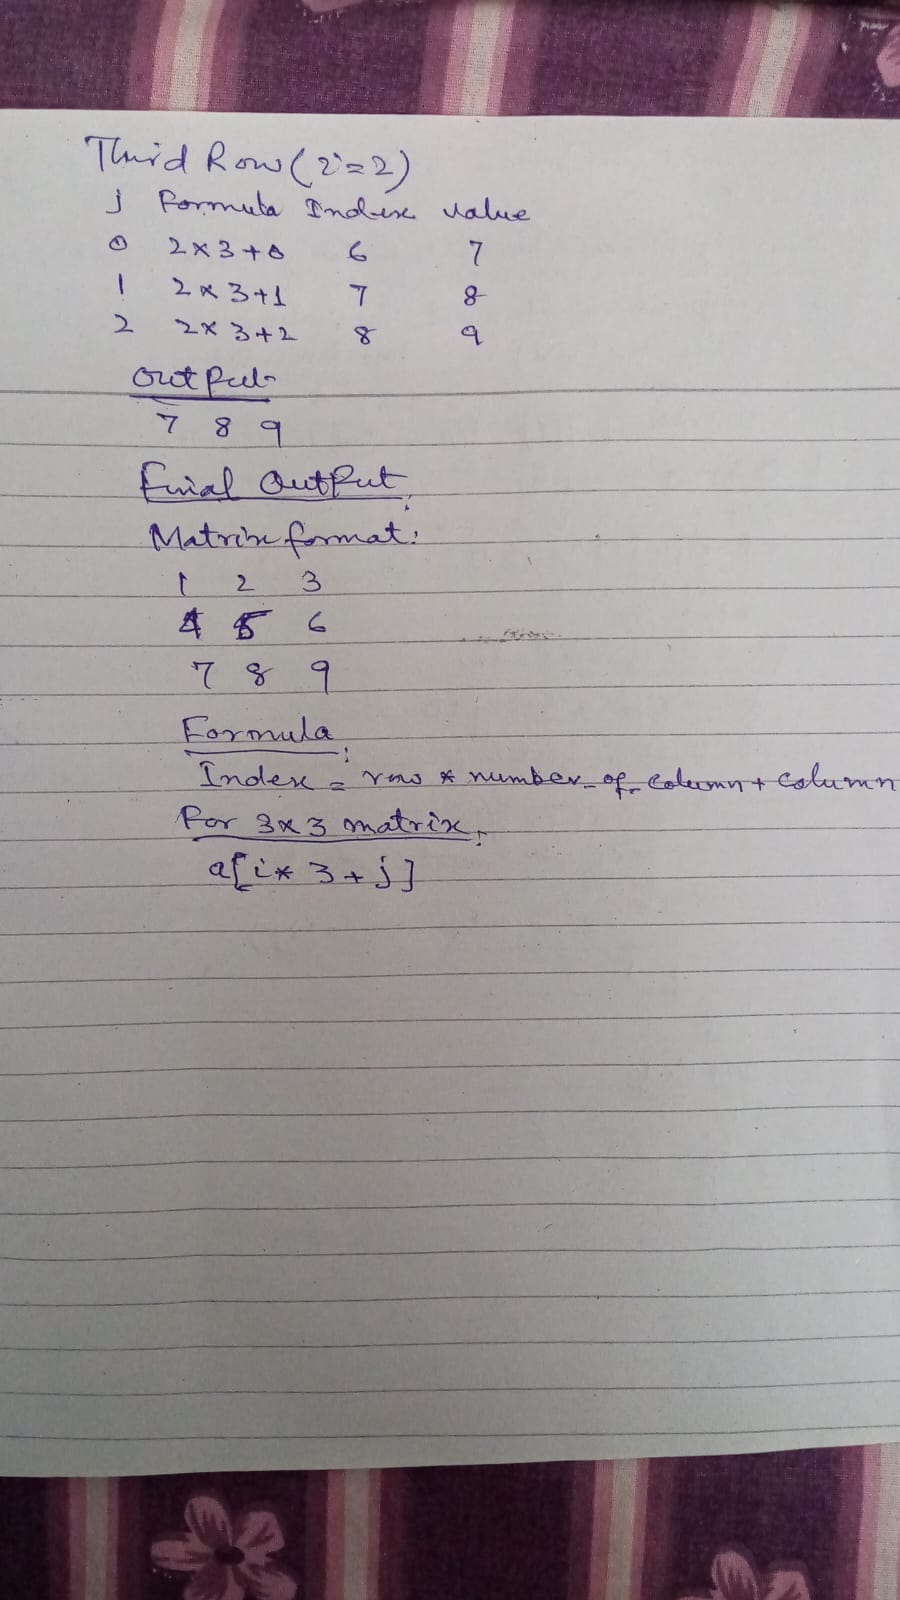 Third Row (i=2)
j Formula Index value
0 2×3+0 6 7
1 2×3+1 7 8
2 2×3+2 8 9
Output
7 8 9
Final Output:
Matrix format:
1 2 3
4 5 6
7 8 9
Formula:
Index = row * number_of_column + column
For 3×3 matrix:
a[i*3+j]